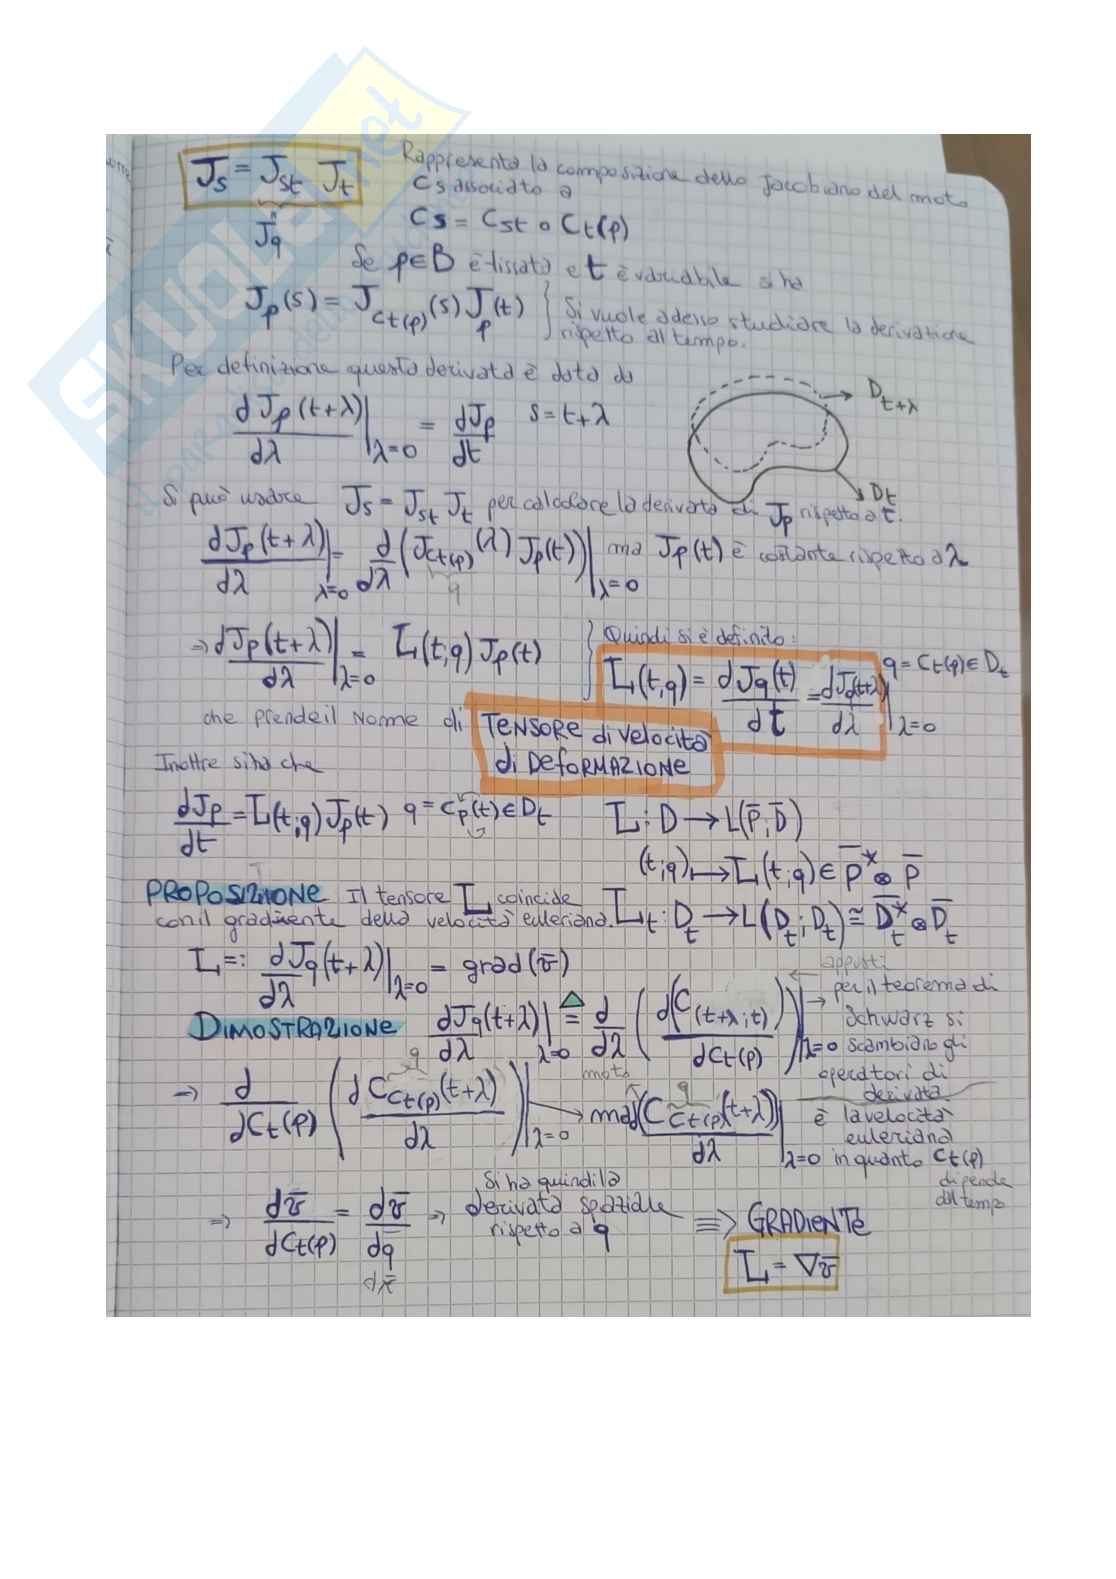 J_s = J_st J_t Rappresenta la composizione dello Jacobiano del moto
C_s associato a
J_q C_s = C_st ∘ C_t(p)
Se p∈B è fissato e t è variabile si ha
J_p(s) = J_{C_t(p)}(s) J_p(t) } Si vuole adesso studiare la derivazione
rispetto al tempo.
Per definizione questa derivata è data da
dJ_p(t+λ)/dλ |_{λ=0} = dJ_p/dt s = t+λ
D_{t+λ}
D_t
Si può usare J_s = J_st J_t per calcolare la derivata di J_p rispetto a t.
dJ_p(t+λ)/dλ |_{λ=0} = d/dλ (J_{C_t(p)}(λ) J_p(t)) |_{λ=0} ma J_p(t) è costante rispetto a λ
q
⇒ dJ_p(t+λ)/dλ |_{λ=0} = L(t;q) J_p(t) } Quindi si è definito:
L(t,q) = dJ_q(t)/dt = dJ_q(t+λ)/dλ |_{λ=0} q = C_t(p) ∈ D_t
che prende il nome di TENSORE di velocità
di DEFORMAZIONE
Inoltre si ha che
dJ_p/dt = L(t;q) J_p(t) q = C_p(t) ∈ D_t L : D → L(P̄;D̄)
(t;q) ↦ L(t;q) ∈ P̄* ⊗ P̄
PROPOSIZIONE Il tensore L coincide
con il gradiente della velocità euleriana. L_t : D_t → L(D_t;D_t) ≅ D̄_t* ⊗ D̄_t
L =: dJ_q(t+λ)/dλ |_{λ=0} = grad(v̄)
appunti
DIMOSTRAZIONE dJ_q(t+λ)/dλ |_{λ=0} = d/dλ (d(C_{(t+λ;t)})/dC_t(p)) |_{λ=0} → per il teorema di
Schwarz si
scambiano gli
operatori di
derivata
⇒ d/dC_t(p) (dC_{C_t(p)}(t+λ)/dλ) |_{λ=0} → ma d(C_{C_t(p)}(t+λ))/dλ |_{λ=0} è la velocità
q
moto
q
euleriana
in quanto C_t(p)
dipende
dal tempo
⇒ dv̄/dC_t(p) = dv̄/dq ⇒ Si ha quindi la
derivata spaziale
rispetto a q ≡> GRADIENTE
dx̄
L = ∇v̄